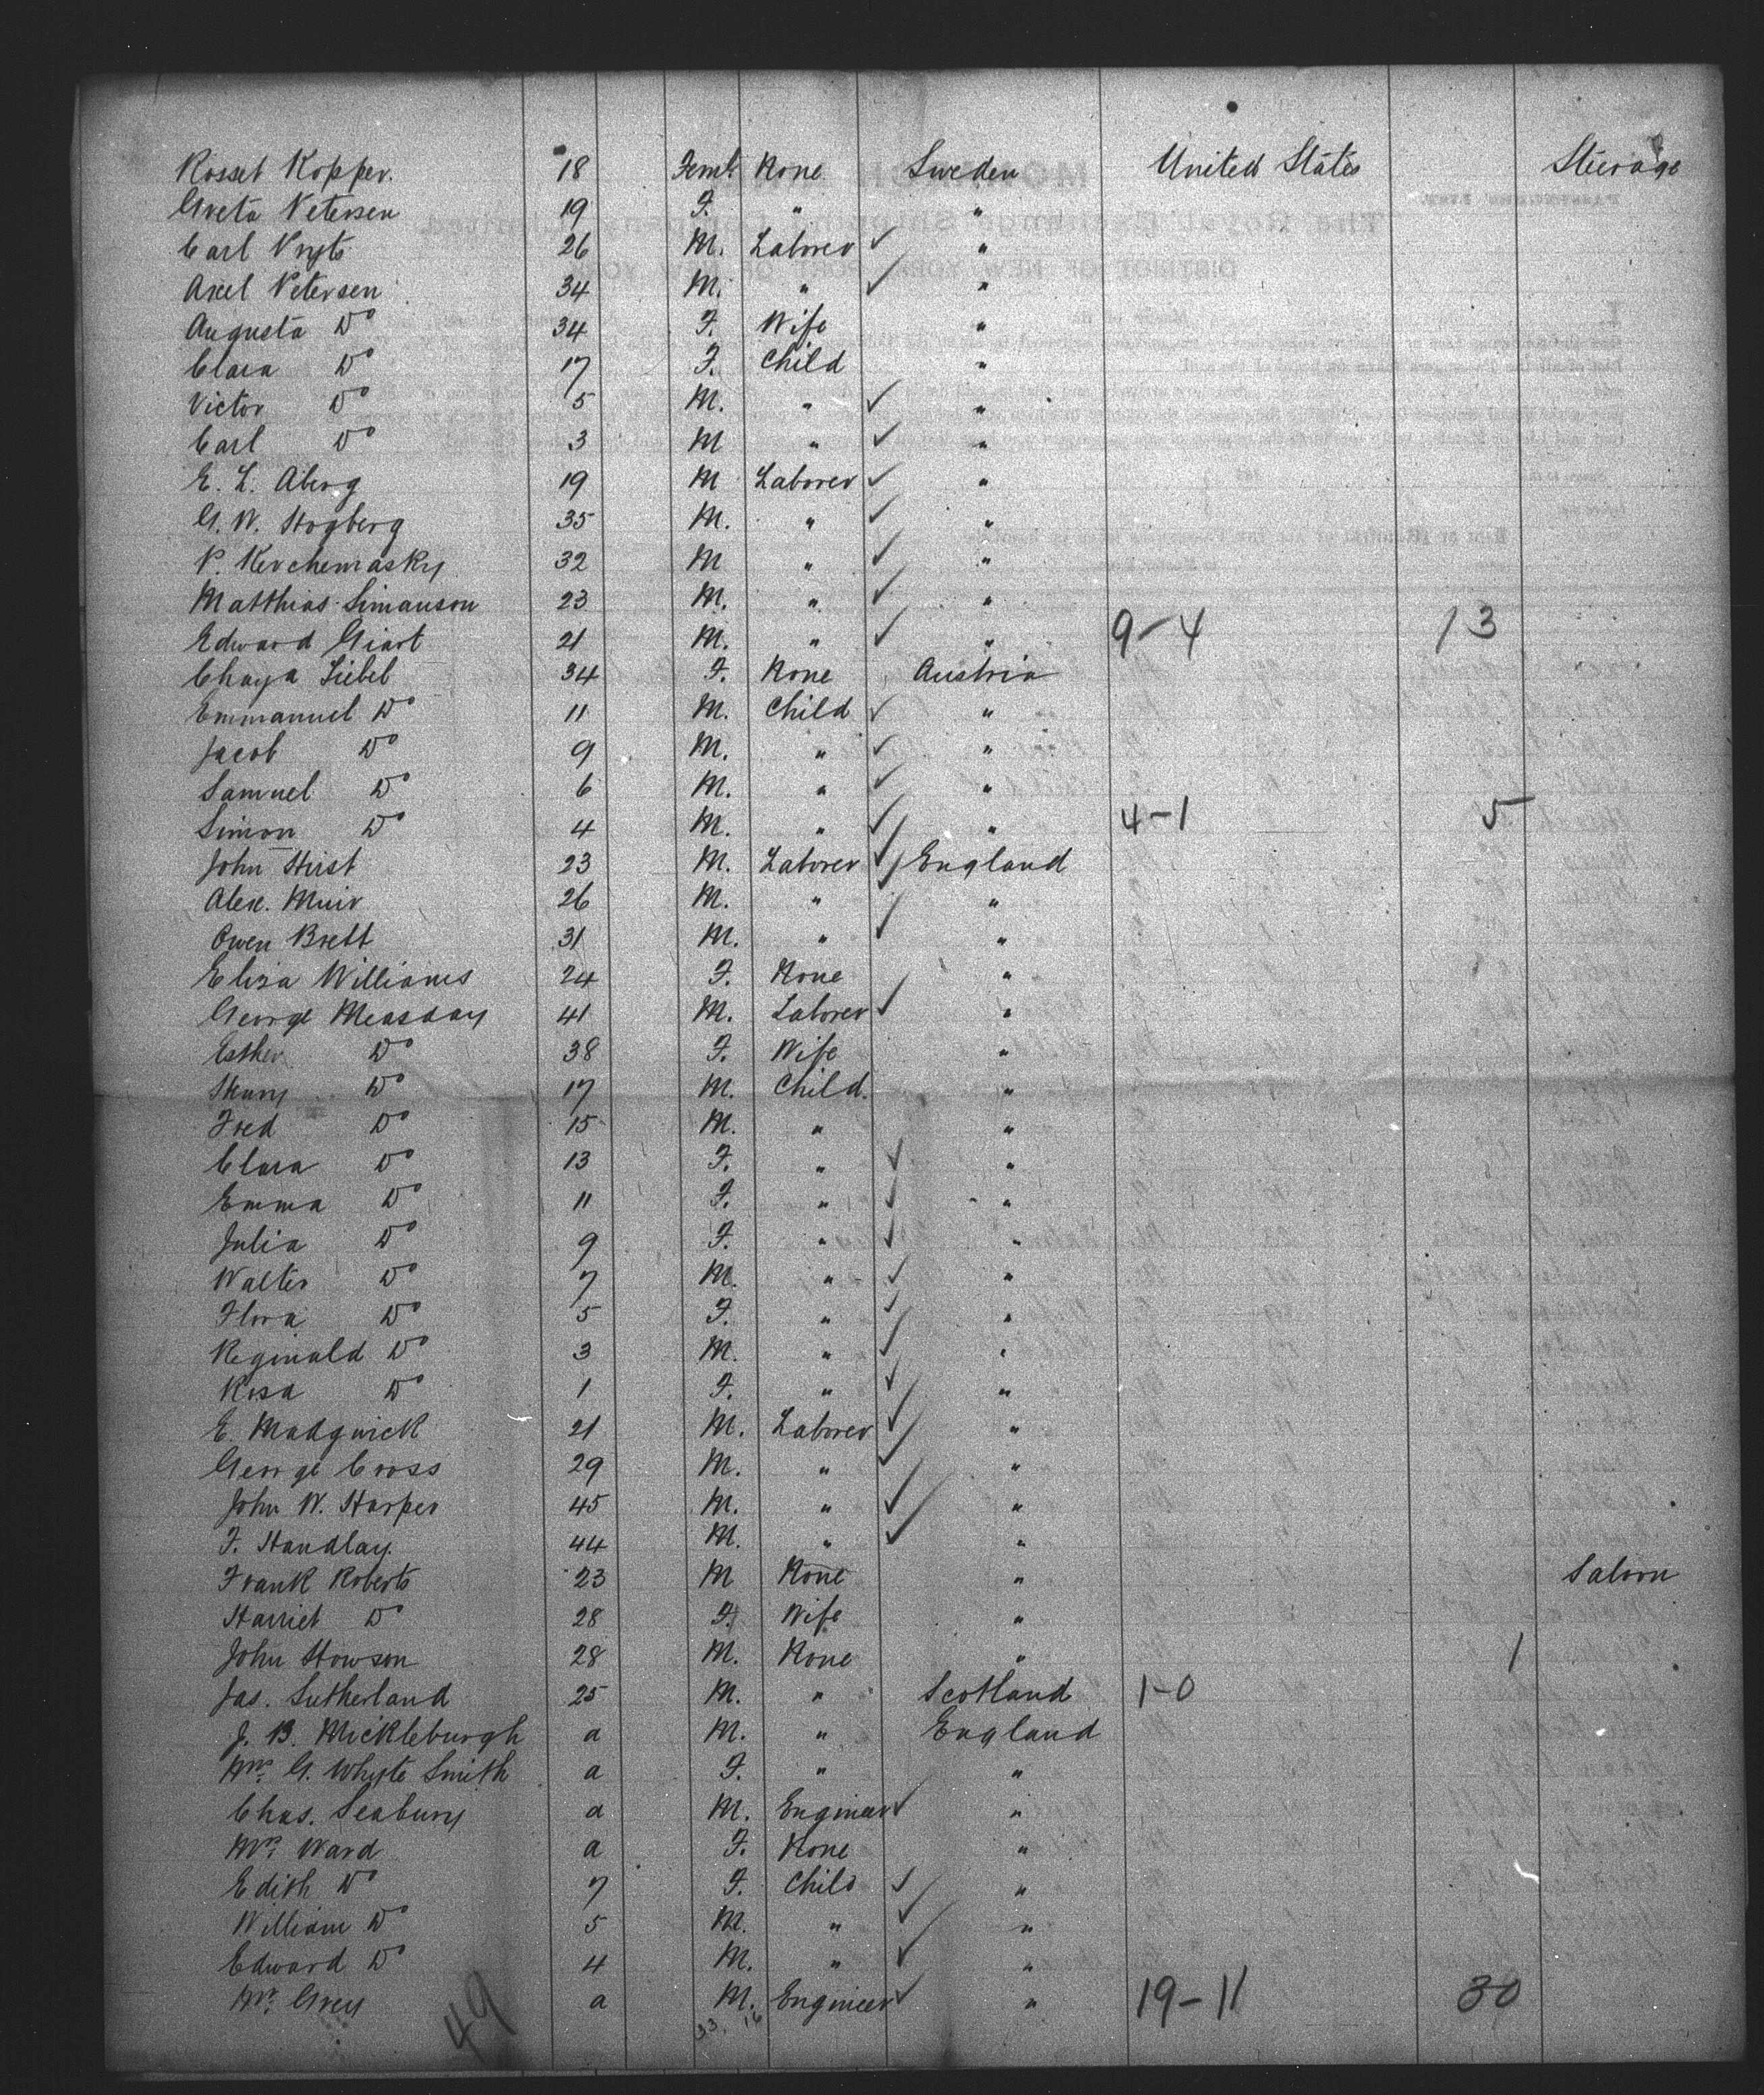 Rosset Kopper. 18 Feml. None Sweden United States Steerage
Greta Petersen 19 F. " "
Carl 26 M. Laborer ✓ "
Axel Petersen 34 M. " ✓ "
Augusta Do 34 F. Wife "
Clara Do 17 F. Child "
Victor Do 5 M. " ✓ "
Carl Do 3 M " ✓ "
E. L. Aberg 19 M Laborer ✓ "
G. W. Hogberg 35 M. " ✓ "
P. Kerchemasky 32 M " ✓ "
Matthias Simanson 23 M. " ✓ "
Edward Giart 21 M. " ✓ " 9-4 13
Chaya Liebel 34 F. None Austria
Emmanuel Do 11 M. Child ✓ "
Jacob Do 9 M. " ✓ "
Samuel Do 6 M. " ✓ "
Simon Do 4 M. " ✓ " 4-1 5
John Hirst 23 M. Laborer ✓ England
Alex. Muir 26 M. " "
Owen Brett 31 M. " ✓ "
Eliza Williams 24 F. None "
George Measday 41 M. Laborer ✓ "
Esther Do 38 F. Wife "
Henry Do 17 M. Child. "
Fred Do 15 M. " "
Clara Do 13 F. " ✓ "
Emma Do 11 F. " ✓ "
Julia Do 9 F. " ✓ "
Walter Do 7 M. " ✓ "
Flora Do 5 F. " ✓ "
Reginald Do 3 M. " ✓ "
Rosa Do 1 F. " ✓ "
E. Madgwick 21 M. Laborer ✓ "
George Cross 29 M. " ✓ "
John W. Harper 45 M. " ✓ "
F. Handlay. 44 M. " ✓ "
Frank Roberts 23 M None " Saloon
Harriet Do 28 F. Wife "
John Howson 28 M. None " 1
Jas. Sutherland 25 M. " Scotland 1-0
J. B. Mickleburgh a M. " England
Mrs. G. Whyte Smith a F. " "
Chas. Seabury a M. Engineer ✓ "
Mrs. Ward a F. None "
Edith Do 7 F. Child ✓ "
William Do 5 M. " ✓ "
Edward Do 4 M. " ✓ "
Mr. Grey a M. Engineer ✓ " 19-11 30
49 33. 16